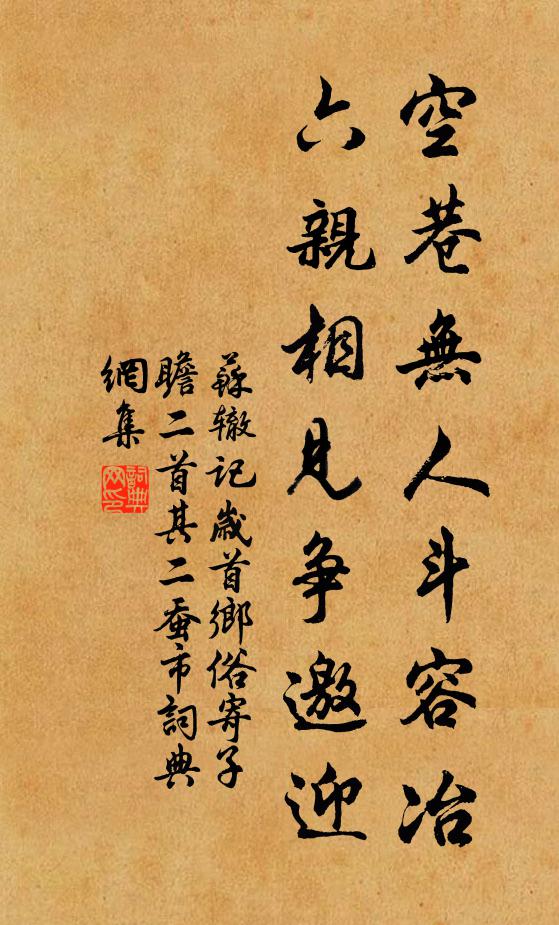 空巷無人斗容冶
六親相見争邀迎
蘇辙記歲首鄉俗寄子
瞻二首其二蚕市詞典
網集
詞典
网印